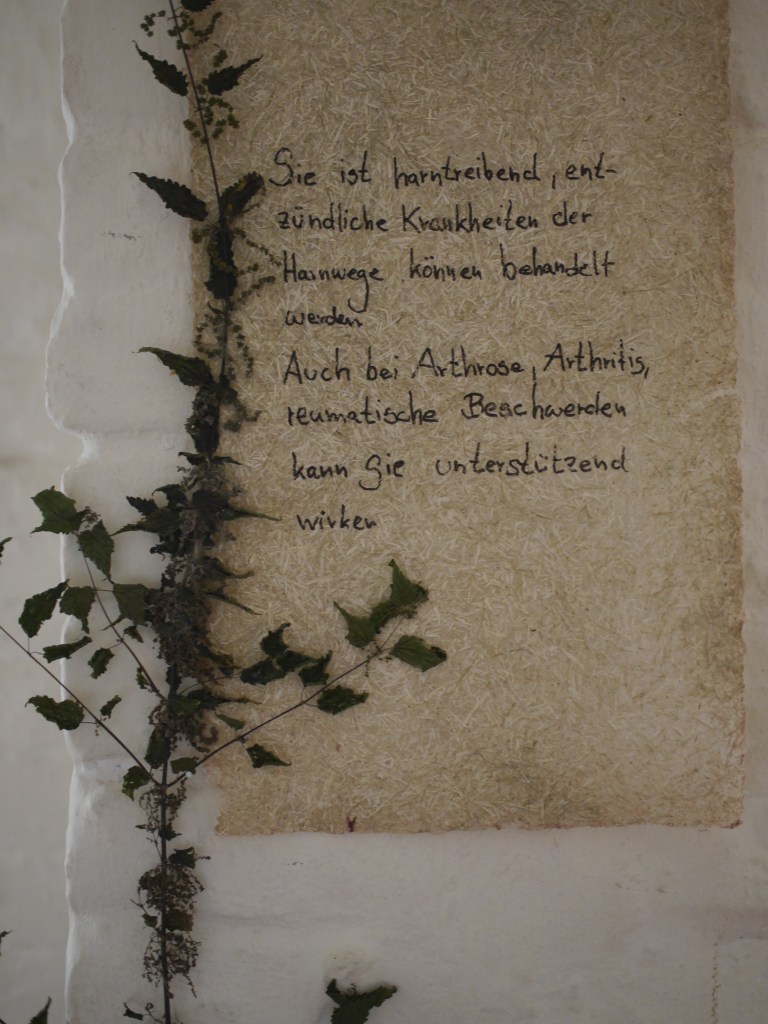 Sie ist harntreibend, ent-
zündliche Krankheiten der
Harnwege können behandelt
werden
Auch bei Arthrose, Arthritis,
reumatische Beschwerden
kann Sie unterstützend
wirken